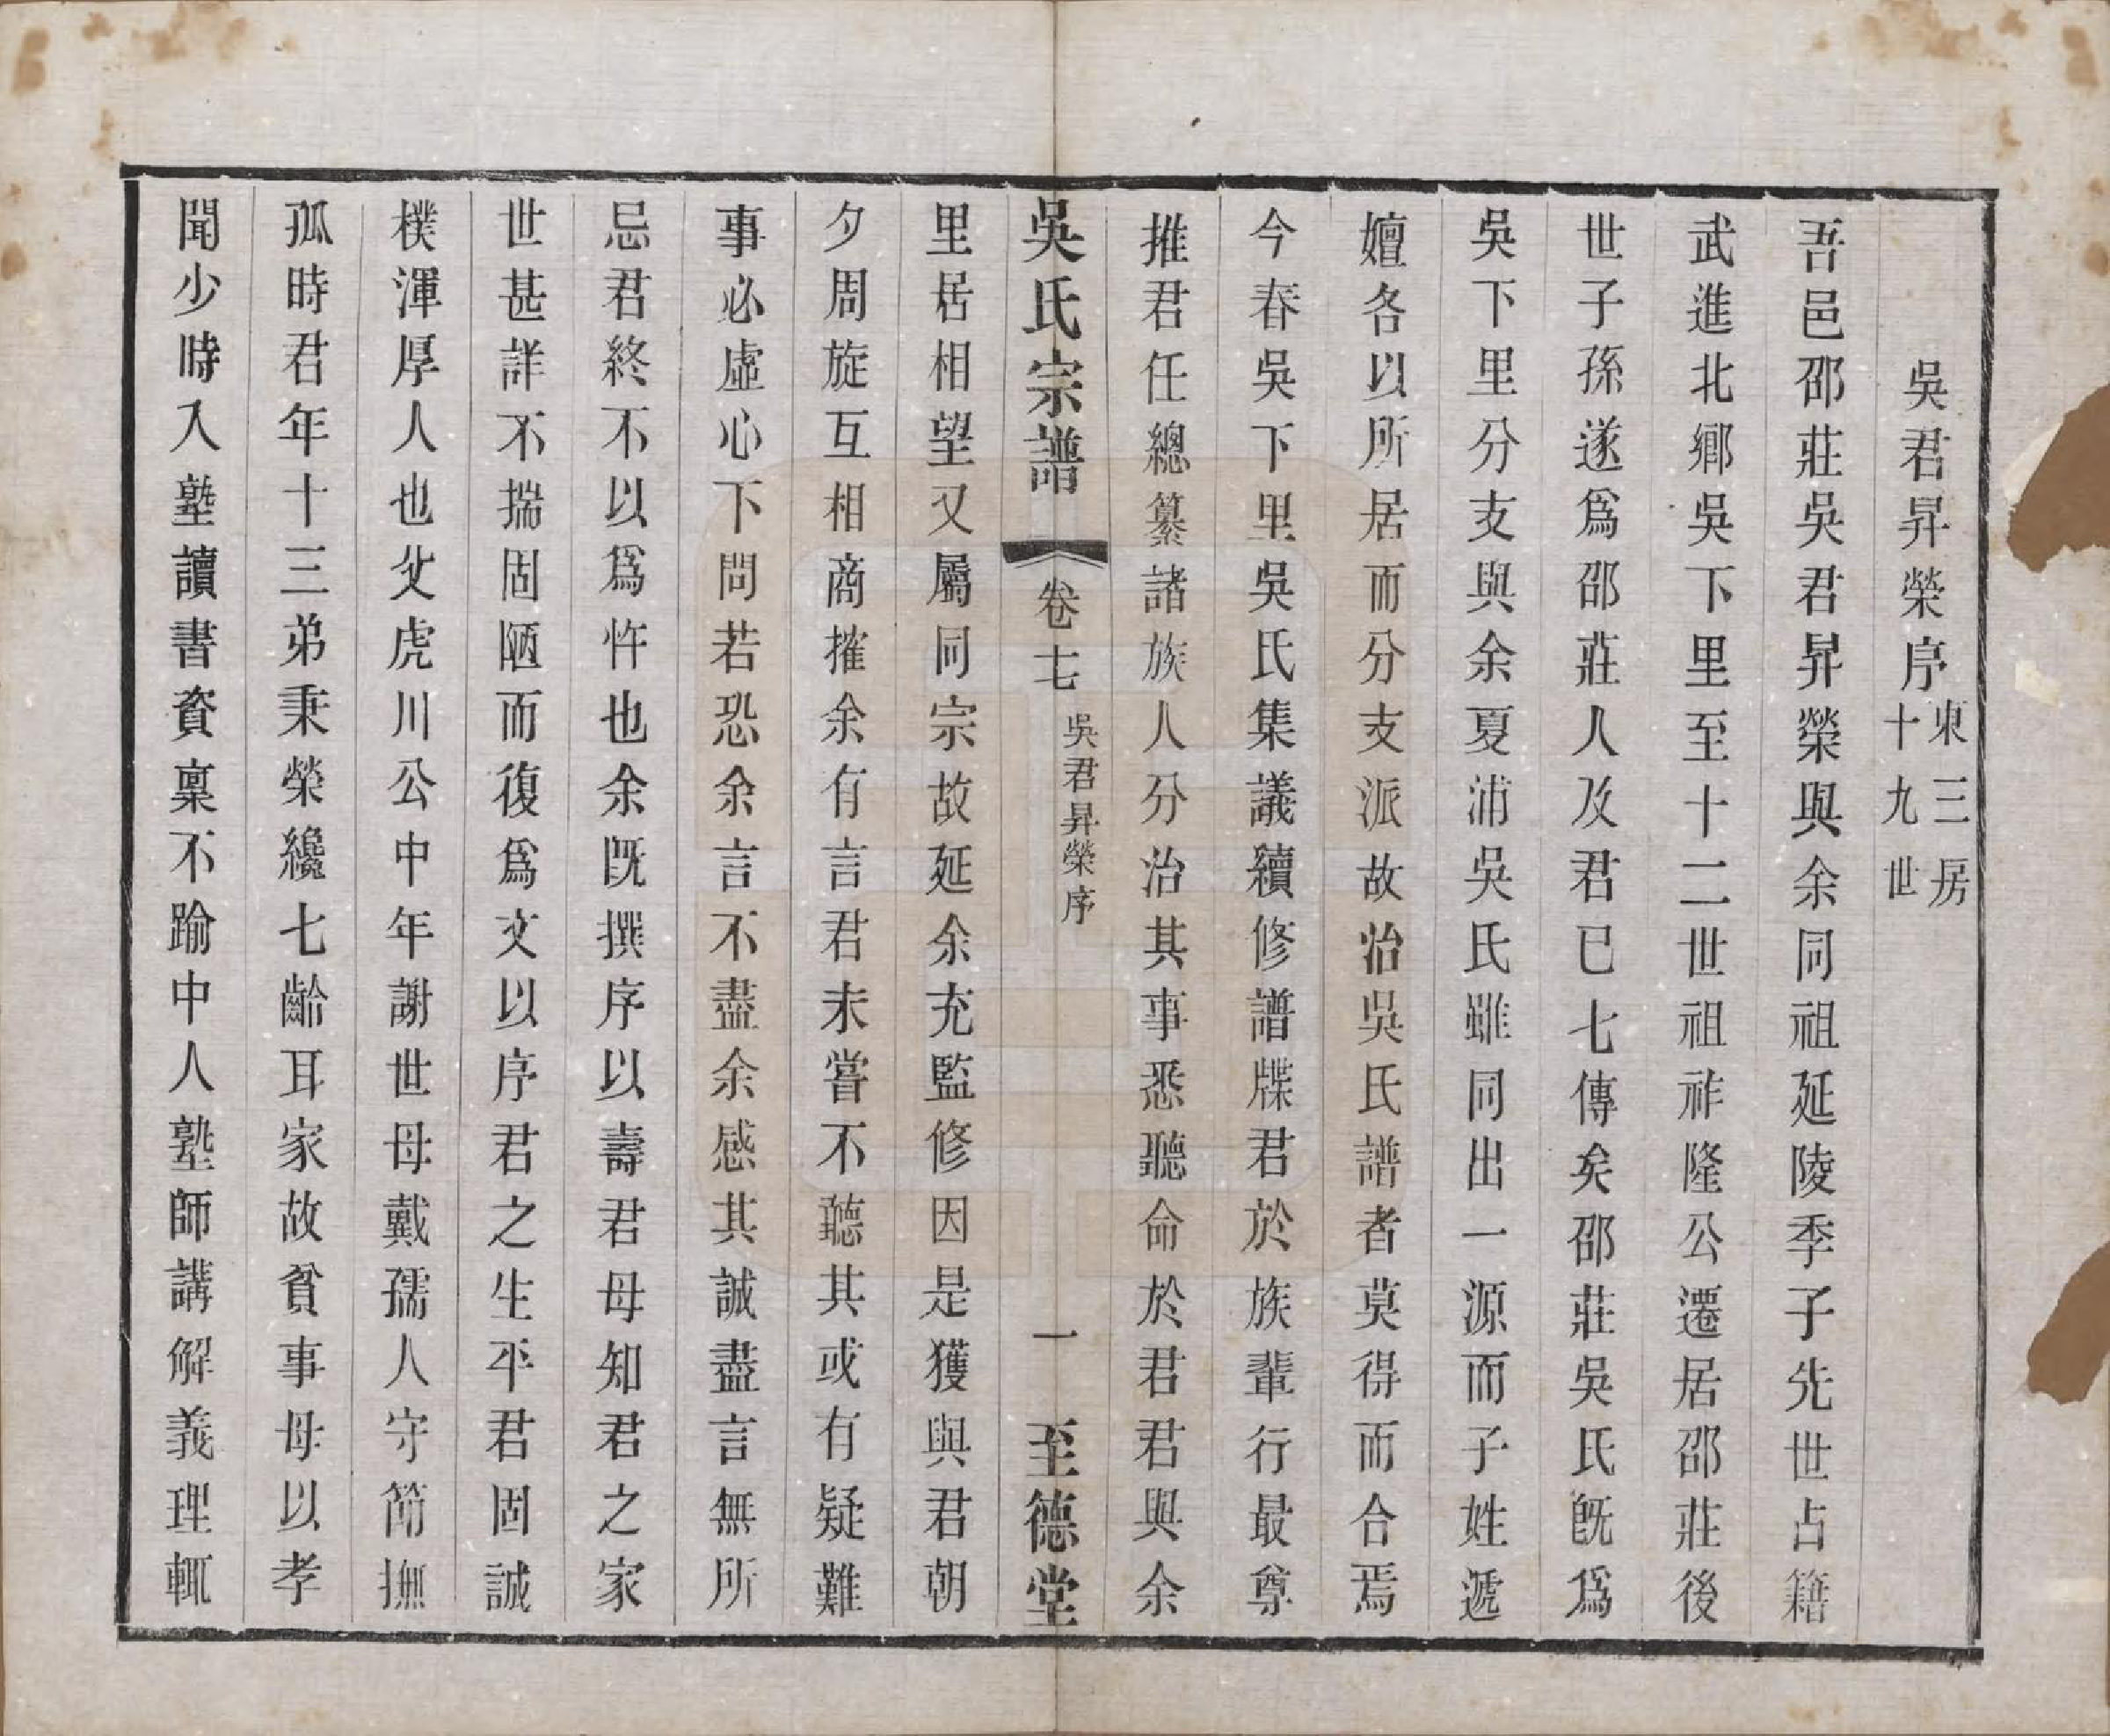 吳君昇榮序東三房十九世
吾邑邵莊吳君昇榮與余同祖延陵季子先世占籍
武進北鄉吳下里至十二世祖祚隆公遷居邵莊後
世子孫遂爲邵莊人及君已七傳矣邵莊吳氏旣爲
吳下里分支與余夏浦吳氏雖同出一源而子姓遞
嬗各以所居而分支派故治吳氏譜者莫得而合焉
今春吳下里吳氏集議續修譜牒君於族輩行最尊
推君任總纂諸族人分治其事悉聽命於君君與余
吳氏宗譜 卷七 吳君昇榮序 一 至德堂
里居相望又屬同宗故延余充監修因是獲與君朝
夕周旋互相商搉余有言君未嘗不聽其或有疑難
事必虛心下問若恐余言不盡余感其誠盡言無所
忌君終不以爲忤也余旣撰序以壽君母知君之家
世甚詳不揣固陋而復爲文以序君之生平君固誠
樸渾厚人也父虎川公中年謝世母戴孺人守節撫
孤時君年十三弟秉榮纔七齡耳家故貧事母以孝
聞少時入塾讀書資稟不踰中人塾師講解義理輒